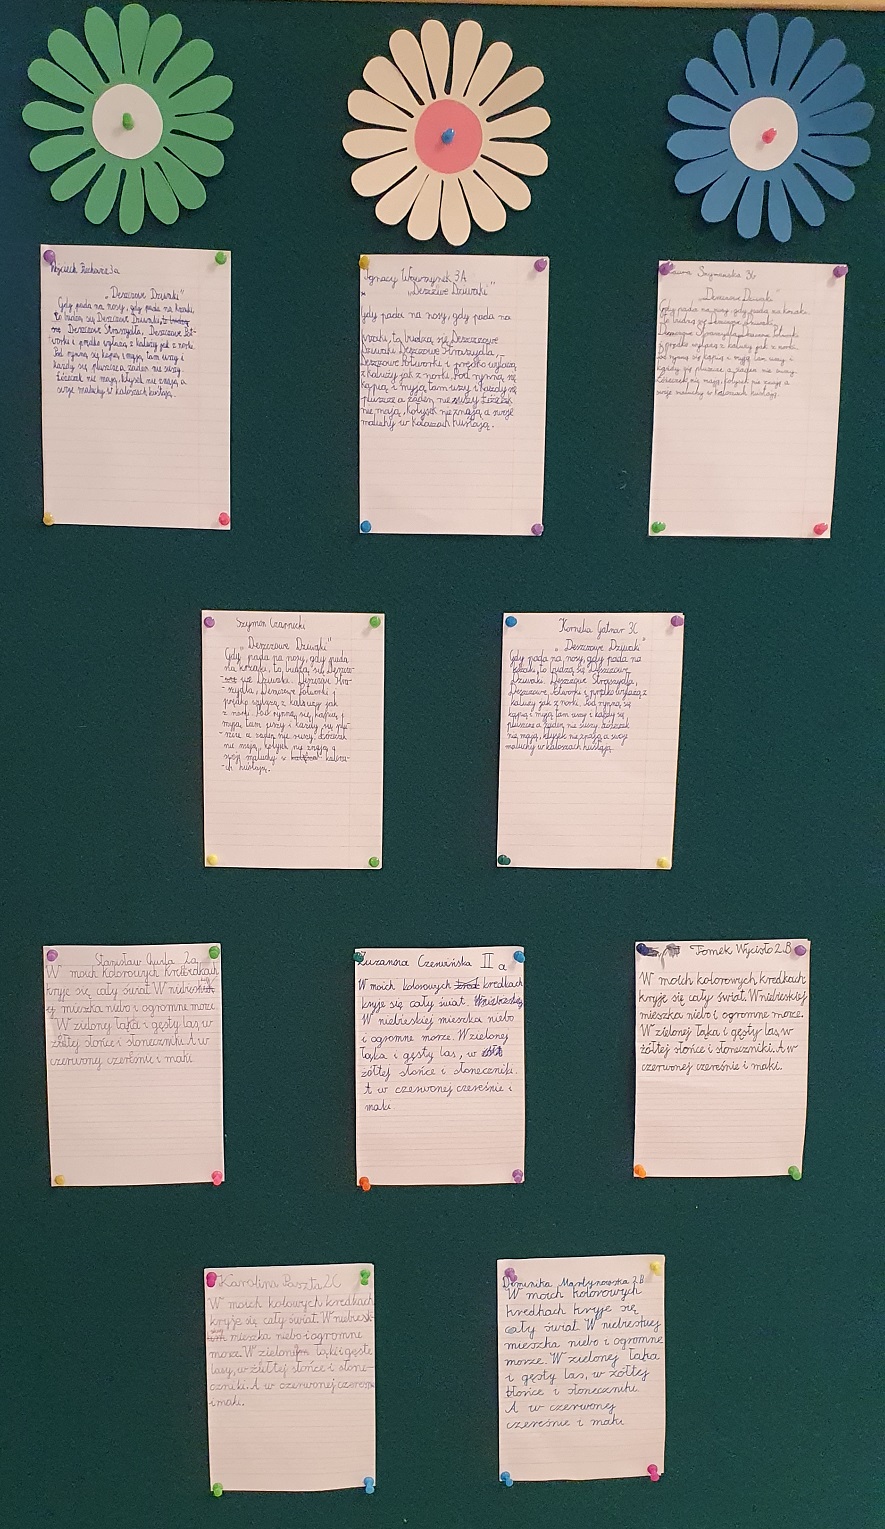 Wojciech 3a
„Deszczowe Dziwaki"
Gdy pada na nosy, gdy pada na krzaki,
to budzą się Deszczowe Dziwaki, to budzą
się Deszczowe Straszydła, Deszczowe Pot-
worki i prędko wyłażą z kałuży jak z norki.
Pod rynną się kąpią i myją tam uszy i
każdy się pluszcze a żaden nie suszy.
Łóżeczek nie mają, kołysek nie znają a
swoje maluchy w kaloszach huśtają.
Ignacy Wawrzynek 3A
„Deszczowe Dziwaki"
Gdy pada na nosy, gdy pada na
krzaki, to budzą się Deszczowe
Dziwaki Deszczowe Straszydła,
Deszczowe Potworki i prędko wyłażą
z kałuży jak z norki. Pod rynną się
kąpią i myją tam uszy i każdy się
pluszcze a żaden nie suszy Łóżeczek
nie mają, kołysek nie znają a swoje
maluchy w kaloszach huśtają.
Laura Szymańska 3b
„Deszczowe Dziwaki"
Gdy pada na nosy, gdy pada na krzaki,
to budzą się Deszczowe Dziwaki,
Deszczowe Straszydła, Deszczowe Potworki
i prędko wyłażą z kałuży jak z norki.
Pod rynną się kąpią i myją tam uszy i
każdy się pluszcze a żaden nie suszy.
Łóżeczek nie mają, kołysek nie znają a
swoje maluchy w kaloszach huśtają.
Szymon Czarnicki
„Deszczowe Dziwaki"
Gdy pada na nosy, gdy pada
na krzaki, to budzą się Deszczo-
-we Dziwaki. Deszczowe Stra-
-szydła, Deszczowe Potworki i
prędko wyłażą z kałuży jak
z norki. Pod rynną się kąpią i
myją tam uszy i każdy się plu-
-szcze a żaden nie suszy. Łóżeczek
nie mają, kołysek nie znają a
swoje maluchy w kalosza-
-ch huśtają.
Kornelia Gatnar 3C
„Deszczowe Dziwaki"
Gdy pada na nosy, gdy pada na
krzaki, to budzą się Deszczowe
Dziwaki. Deszczowe Straszydła,
Deszczowe Potworki i prędko wyłażą z
kałuży jak z norki. Pod rynną się
kąpią i myją tam uszy i każdy się
pluszcze a żaden nie suszy. Łóżeczek
nie mają, kołysek nie znają a swoje
maluchy w kaloszach huśtają.
Stanisław 2a
W moich kolorowych kredkach
kryje się cały świat. W niebiesk
ej mieszka niebo i ogromne morze.
W zielonej łąka i gęsty las, w
żółtej słońce i słoneczniki. A w
czerwonej czereśnie i maki.
Zuzanna Czerwińska II a
W moich kolorowych kredkach
kryje się cały świat. W niebieskiej
W niebieskiej mieszka niebo
i ogromne morze. W zielonej
łąka i gęsty las, w
żółtej słońce i słoneczniki.
A w czerwonej czereśnie i
maki
Tomek Wycisło 2B
W moich kolorowych kredkach
kryje się cały świat. W niebieskiej
mieszka niebo i ogromne morze.
W zielonej łąka i gęsty las, w
żółtej słońce i słoneczniki. A w
czerwonej czereśnie i maki.
Karolina Paszta 2C
W moich kolowych kredkach
kryje się cały świat. W niebiesk-
mieszka niebo i ogromne
morze. W zielonej łąki i gęste
lasy, w żółtej słońce i słone-
czniki. A w czerwonej czereśnie
i maki.
Dominika Martynowska 2B
W moich kolorowych
kredkach kryje się
cały świat. W niebieskiej
mieszka niebo i ogromne
morze. W zielonej łąka
i gęsty las, w żółtej
słońce i słoneczniki.
A w czerwonej
czereśnie i maki